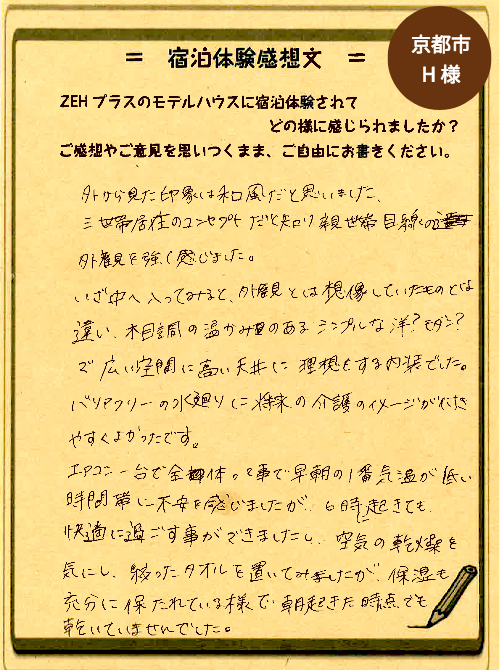 京都市
H 様
＝ 宿泊体験感想文 ＝
ZEH プラスのモデルハウスに宿泊体験されて
どの様に感じられましたか？
ご感想やご意見を思いつくまま、ご自由にお書きください。
外から見た印象は和風だと思いました、
三世帯居住のコンセプトだと知り親世帯目線の
外観を強く感じました。
いざ中へ入ってみると、外観とは想像していたものとは
違い、木目調の温かみのあるシンプルな洋？モダン？
で広い空間に高い天井に理想とする内装でした。
バリアフリーの水廻りに将来の介護のイメージができ
やすくよかったです。
エアコン一台で全館体って事で早朝の1番気温が低い
時間帯に不安を感じましたが、6時に起きても、
快適に過ごす事ができましたし、空気の乾燥を
気にし、絞ったタオルを置いてみましたが、保湿も
充分に保たれている様で朝起きた時点でも
乾いていませんでした。